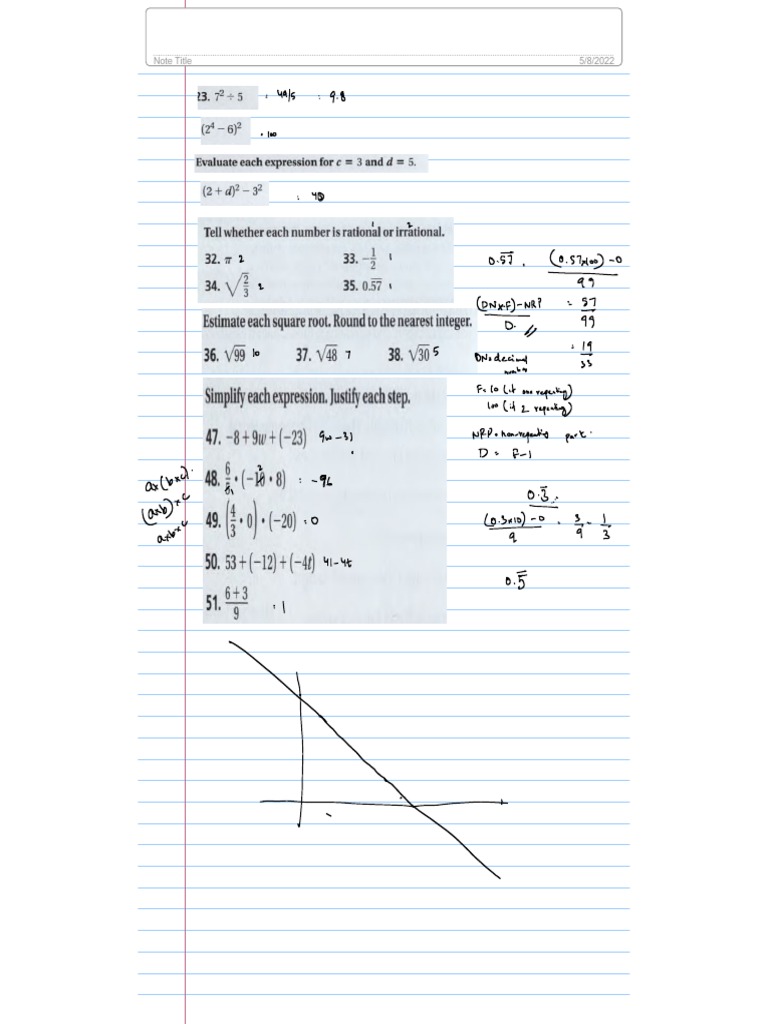 Note Title
5/8/2022
23. 7² ÷ 5 = 49/5 = 9.8
(2⁴ − 6)² = 100
Evaluate each expression for c = 3 and d = 5.
(2 + d)² − 3² = 40
Tell whether each number is rational or irrational.
1 2
32. π 2 33. −1/2 1
34. √(2/3) 2 35. 0.5̅7̅ 1
Estimate each square root. Round to the nearest integer.
36. √99 10 37. √48 7 38. √30 5
Simplify each expression. Justify each step.
47. −8 + 9w + (−23) 9w − 31
48. 6/5 • (−10 • 8) = −96
49. (4/3 • 0) • (−20) = 0
50. 53 + (−12) + (−4t) 41 − 4t
51. (6 + 3)/9 = 1
a×(b×c) =
(a×b)×c
a×b×c
0.5̅7̅ = ((0.57×100) − 0)/99
((DN×F) − NRP)/D = 57/99
= 19/33
DN = decimal
number
F = 10 (if one repeating)
100 (if 2 repeating)
NRP = non-repeating part.
D = F − 1
0.3̅ =
((0.3×10) − 0)/9 = 3/9 = 1/3
0.5̅